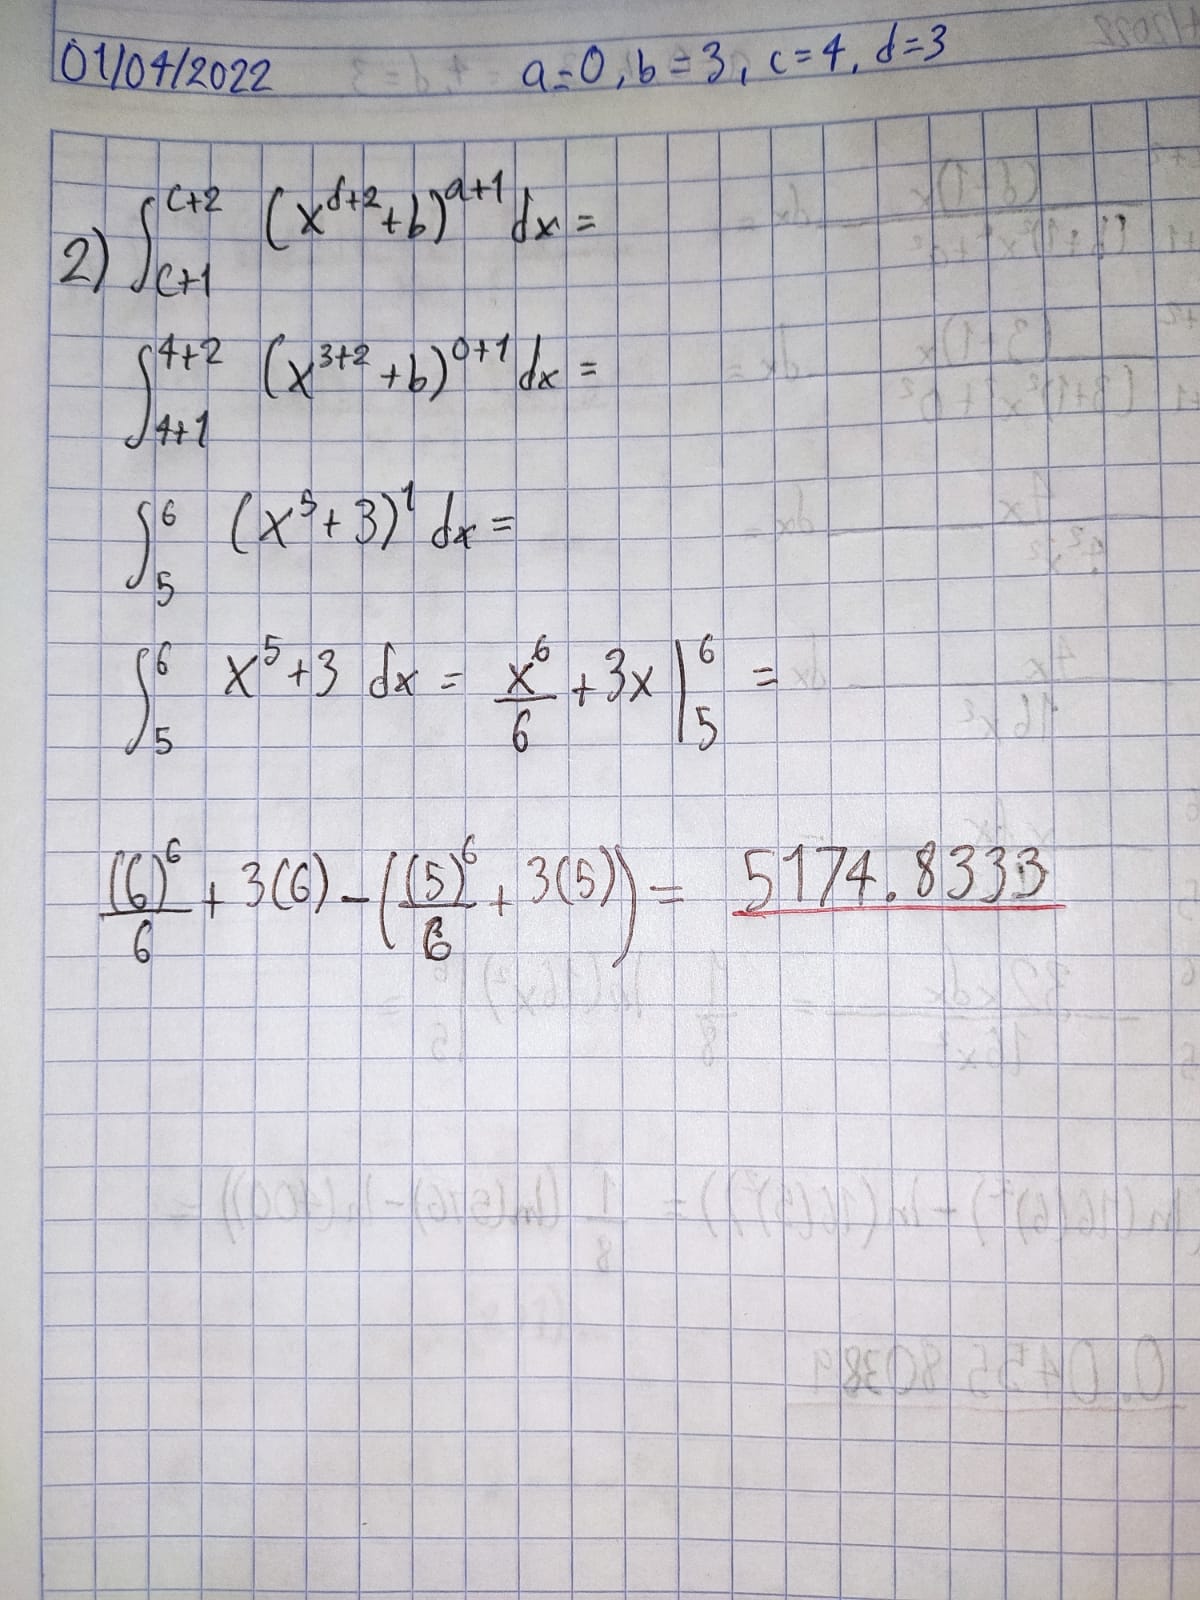 01/04/2022 a=0, b=3, c=4, d=3
2) ∫_{c+1}^{c+2} (x^{d+2}+b)^{a+1} dx =
∫_{4+1}^{4+2} (x^{3+2}+b)^{0+1} dx =
∫_5^6 (x^5+3)^1 dx =
∫_5^6 x^5+3 dx = x^6/6 + 3x |_5^6 =
(6)^6/6 + 3(6) - ((5)^6/6 + 3(5)) = 5174.8333